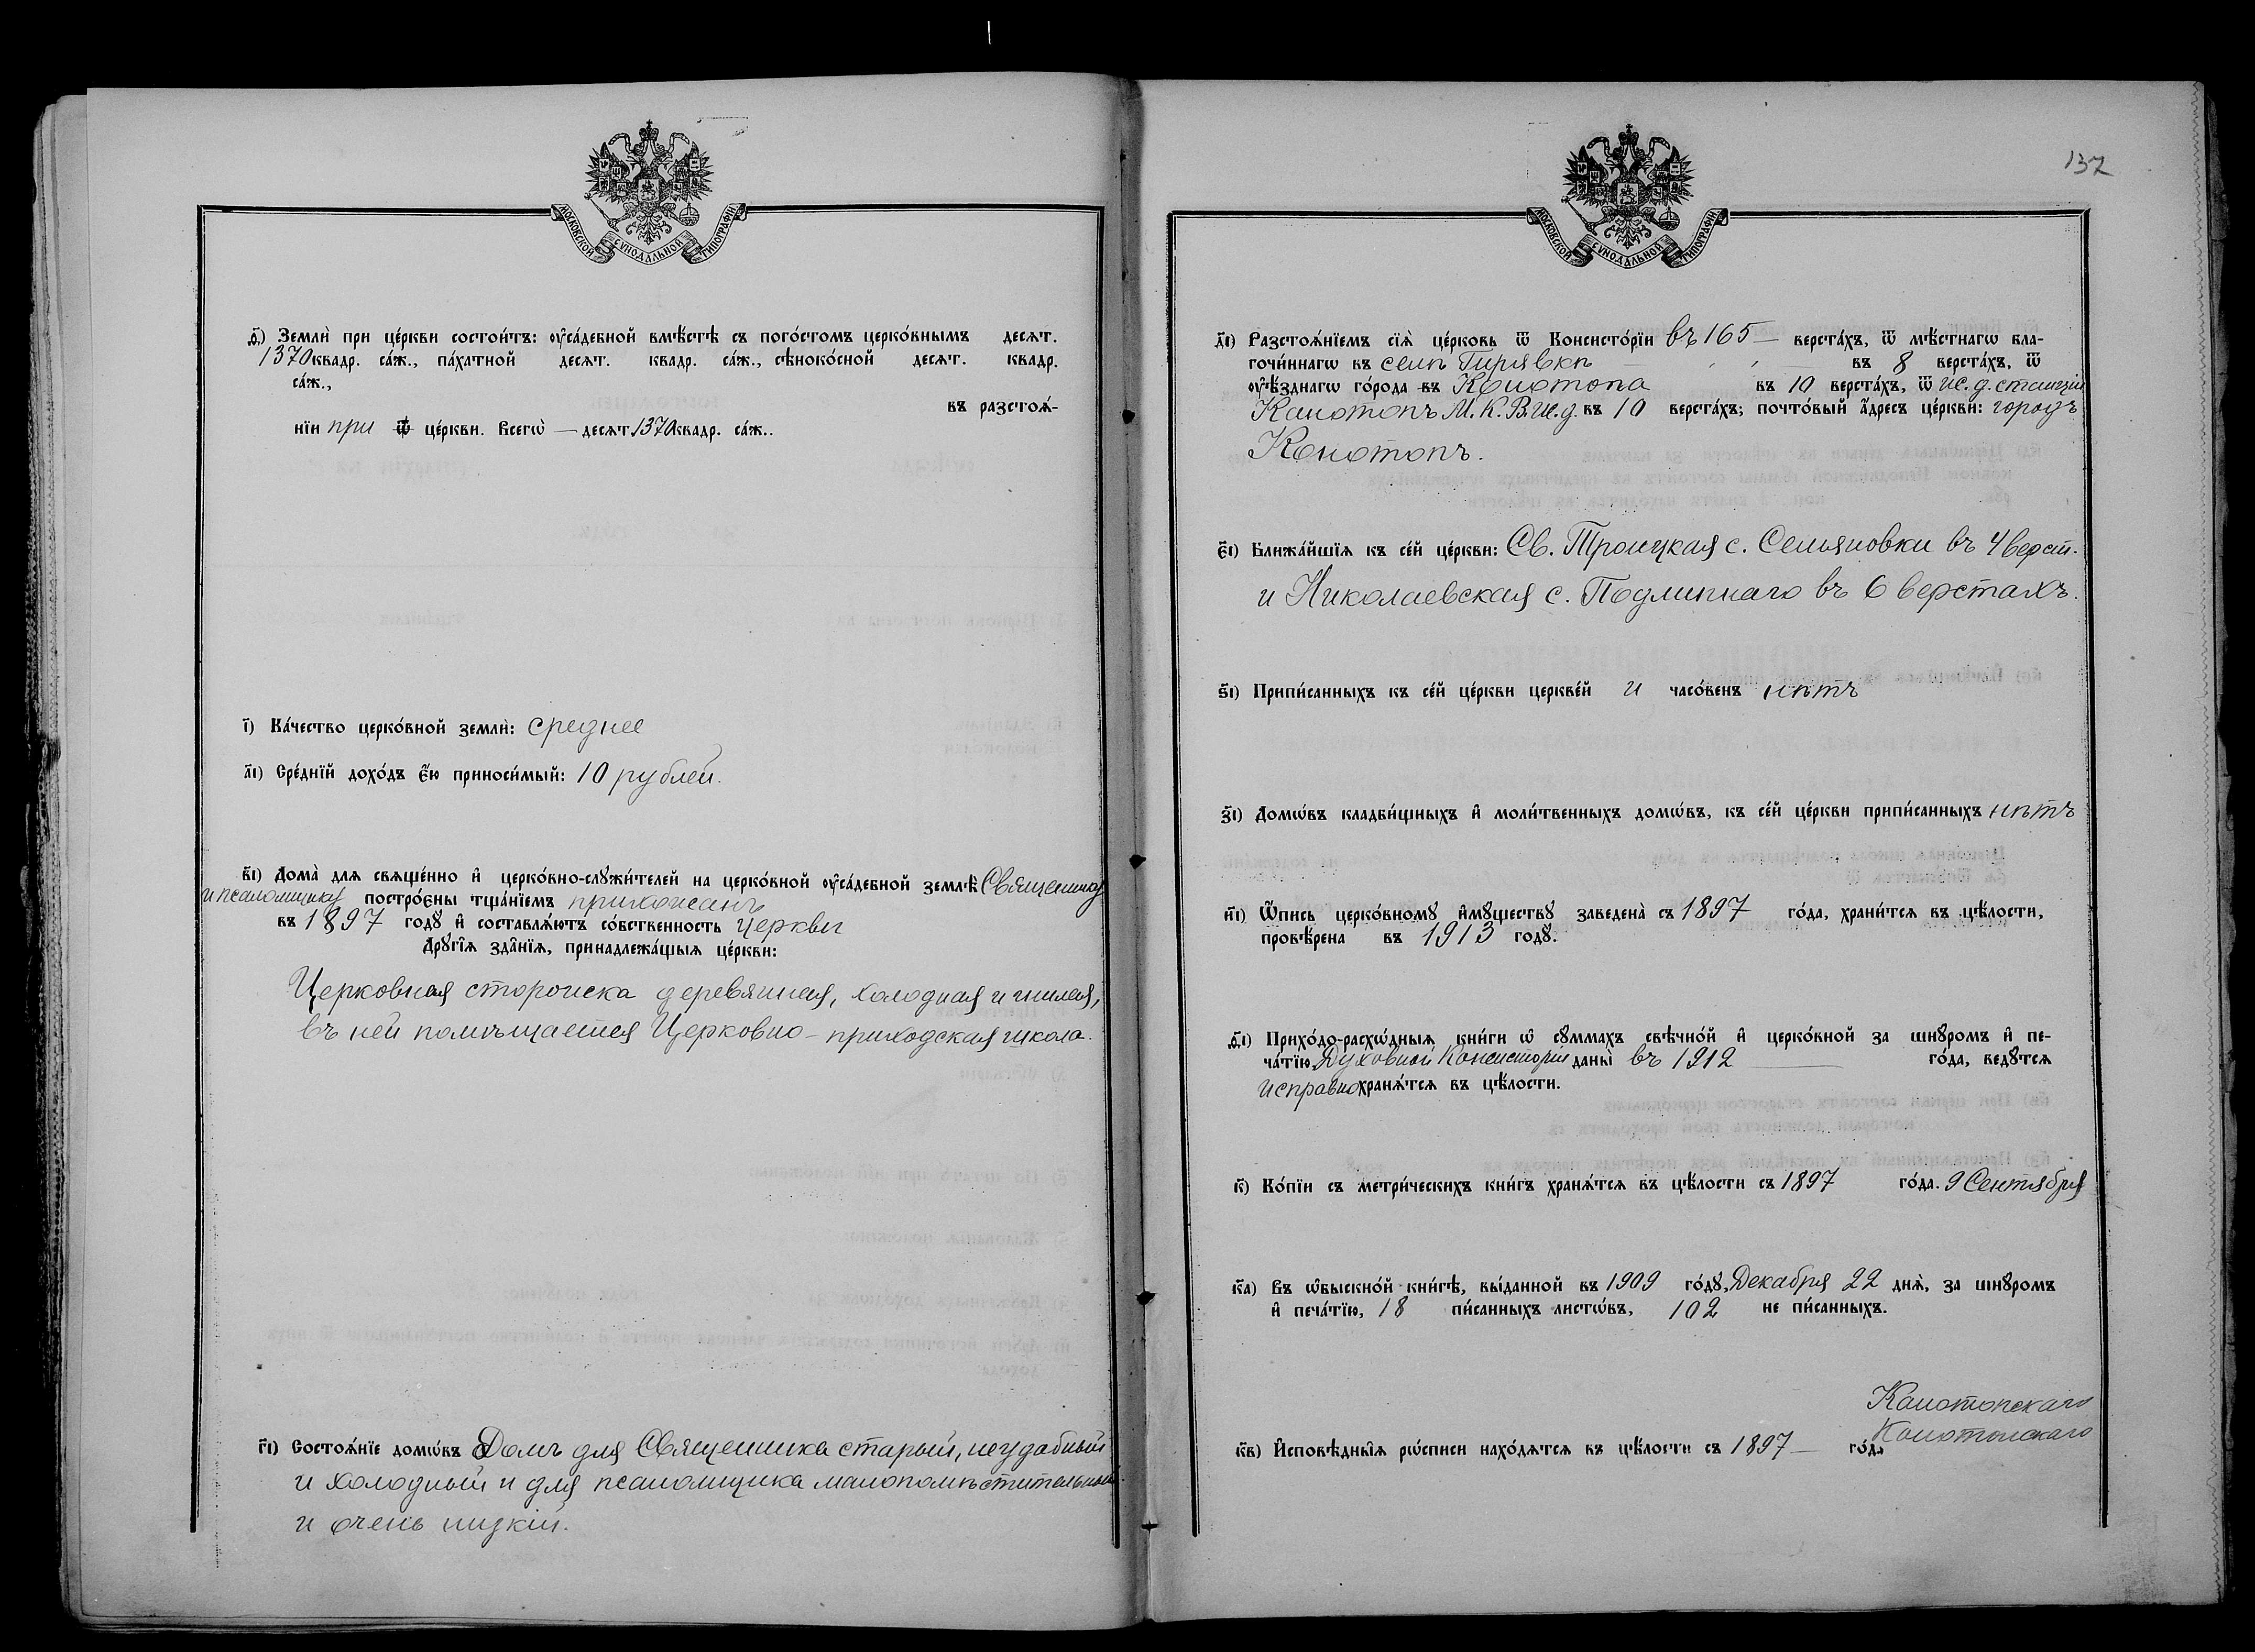 МОСКОВСКОЙ СУНОДАЛЬНОЙ ТИПОГРАФІИ
д҃) Землѝ при це́ркви состои́тъ: оу҆са́дебной вмѣ́стѣ съ пого́стомъ церко́внымъ десѧт.
1370 квадр. са́ж., па́хатной десѧт. квадр. са́ж., сѣноко́сной десѧт. квадр.
са́ж.,
въ разстоѧ́-
нїи при ѿ це́ркви. Всегѡ̀ — десѧт. 1370 квадр. са́ж..
і҃) Ка́чество церко́вной землѝ: среднее
а҃і) Сре́днїй дохо́дъ е҆́ю приноси́мый: 10 рублей.
в҃і) Дома̀ для свѧще́нно и҆ церко́вно-слꙋжи́телей на церко́вной оу҆са́дебной землѣ̀ Священнику
и псаломщику постро́ены тща́нїемъ прихожанъ
въ 1897 годꙋ̀ и҆ составлѧ́ютъ со́бственность церкви
Дрꙋгі̑ѧ зда̑нїѧ, принадлежа́щыѧ це́ркви:
Церковная сторожка деревянная, холодная и гнилая,
въ ней помѣщается Церковно-приходская школа.
г҃і) Состоѧ́нїе домѡ́въ Домъ для Священника старый, неудобный
и холодный и для псаломщика малопомѣстительный
и очень низкій.
137
МОСКОВСКОЙ СУНОДАЛЬНОЙ ТИПОГРАФІИ
д҃і) Разстоѧ́нїемъ сїѧ̀ це́рковь ѿ Консисто́рїи въ 165 — верста́хъ, ѿ мѣ́стнагѡ бла-
гочи́ннагѡ въ селѣ Гирявкѣ въ 8 верста́хъ, ѿ
оу҆ѣ́зднагѡ го́рода въ Конотопа въ 10 верста́хъ, ѿ ж. д. станціи
Конотопъ М. К. В. ж. д. въ 10 верста́хъ; почто́вый а҆́дресъ це́ркви: городъ
Конотопъ.
є҃і) Ближа́йшїѧ къ се́й це́ркви: Св. Троицкая с. Семяновки въ 4 верст.
и Николаевская с. Подлипнаго въ 6 верстахъ.
ѕ҃і) Припи́санныхъ къ се́й це́ркви церкве́й и часо́венъ нѣтъ
з҃і) Домѡ́въ кладби́щныхъ и҆ моли́твенныхъ домѡ́въ, къ се́й це́ркви припи́санныхъ нѣтъ
и҃і) Ѡ҆́пись церко́вномꙋ и҆мꙋ́ществꙋ заведена̀ съ 1897 го́да, храни́тсѧ въ цѣ́лости,
провѣ́рена въ 1913 годꙋ̀.
ѳ҃і) Прихо́до-расхѡ́дныѧ кни́ги ѡ҆ сꙋ́ммахъ свѣчно́й и҆ церко́вной за шнꙋро́мъ и҆ пе-
ча́тїю Духовной Консисторіи даны̀ въ 1912 — го́да, ведꙋ́тсѧ
исправно хранѧ́тсѧ въ цѣ́лости.
к҃) Ко́пїи съ метри́ческихъ кни́гъ хранѧ́тсѧ въ цѣ́лости съ 1897 го́да. 9 Сентября
к҃а) Въ ѡ҆быскно́й кни́гѣ, вы́данной въ 1909 го́дꙋ, Декабря 22 днѧ̀, за шнꙋро́мъ
и҆ печа́тїю, 18 пи́санныхъ листѡ́въ, 102 не пи́санныхъ.
Конотопскаго
Конотопскаго
к҃в) И҆сповѣ́дныѧ рѡ́списи нахо́дѧтсѧ въ цѣ́лости съ 1897 — го́да